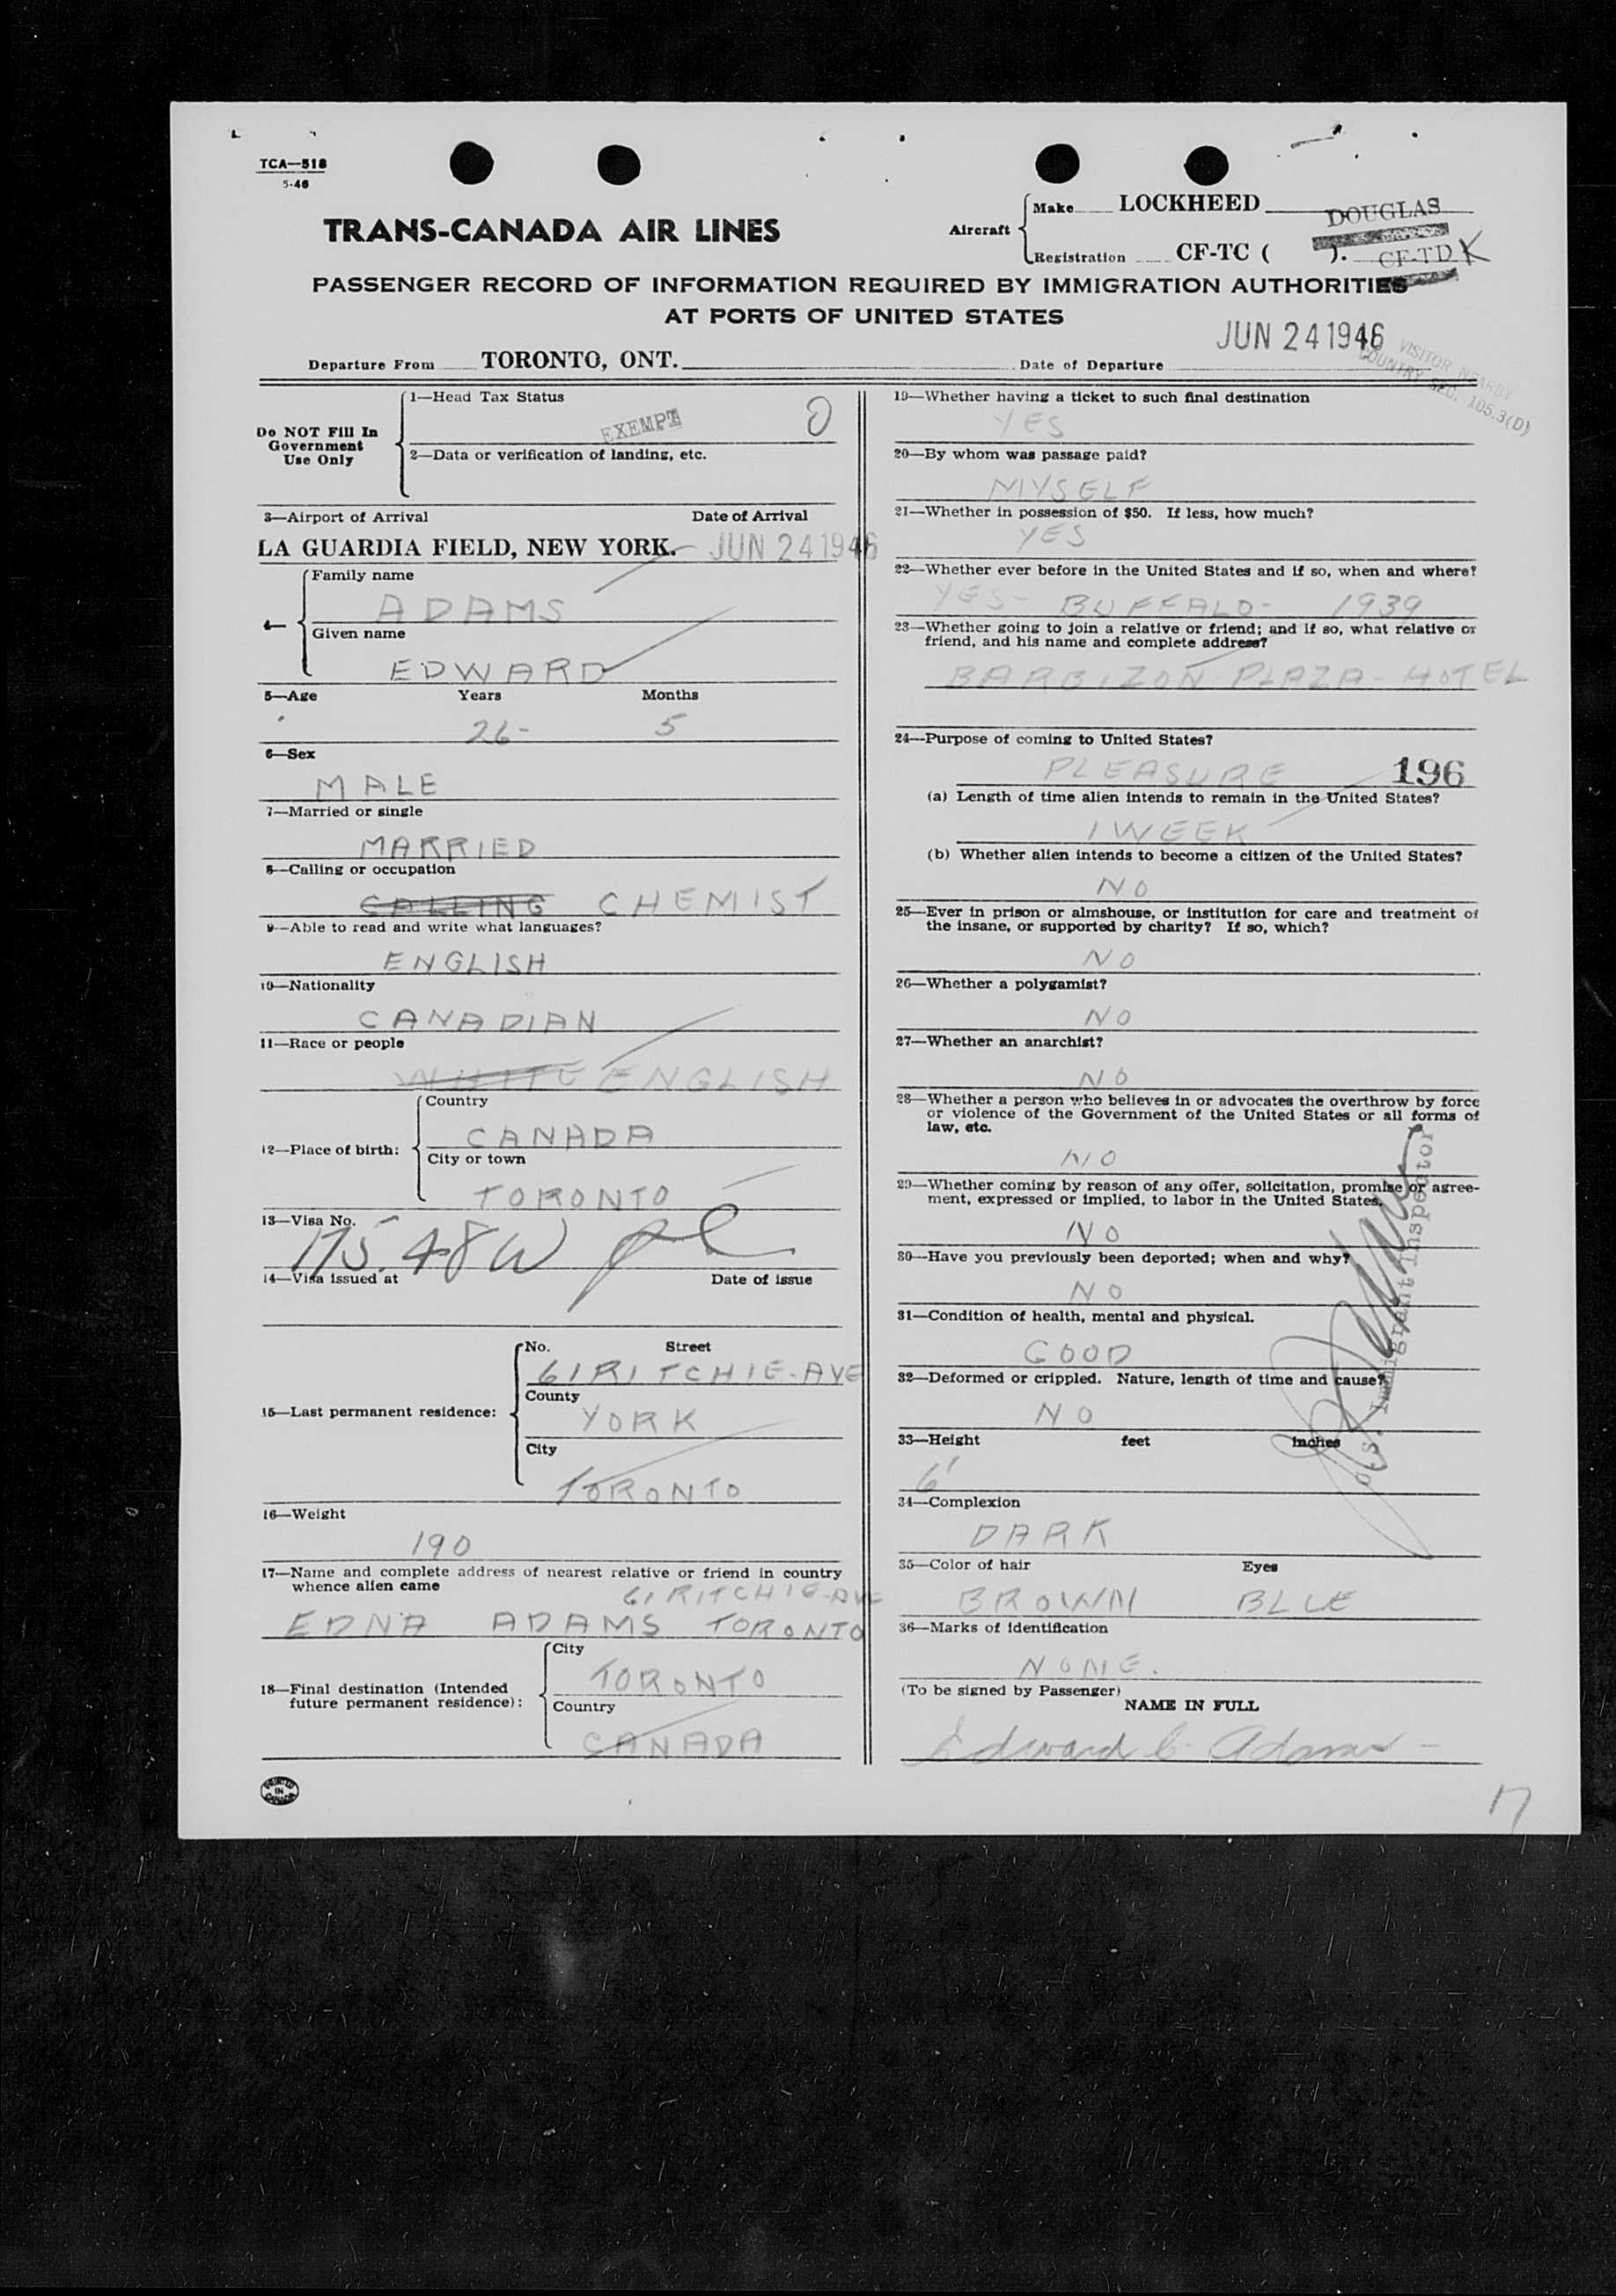 TCA—518
5-46
TRANS-CANADA AIR LINES
Aircraft
Make LOCKHEED DOUGLAS
Registration CF-TC ( ). CF-TD K
PASSENGER RECORD OF INFORMATION REQUIRED BY IMMIGRATION AUTHORITIES
AT PORTS OF UNITED STATES
JUN 24 1946
VISITOR NEARBY
COUNTRY SEC. 105.3(D)
Departure From TORONTO, ONT. Date of Departure
Do NOT Fill In
Government
Use Only
1—Head Tax Status
EXEMPT 0
2—Data or verification of landing, etc.
3—Airport of Arrival Date of Arrival
LA GUARDIA FIELD, NEW YORK. JUN 24 1946
4—
Family name
ADAMS
Given name
EDWARD
5—Age Years Months
26- 5
6—Sex
MALE
7—Married or single
MARRIED
8—Calling or occupation
CALLING CHEMIST
9—Able to read and write what languages?
ENGLISH
10—Nationality
CANADIAN
11—Race or people
WHITE ENGLISH
12—Place of birth:
Country
CANADA
City or town
TORONTO
13—Visa No.
175.48W
14—Visa issued at Date of issue
15—Last permanent residence:
No. Street
61 RITCHIE-AVE
County
YORK
City
TORONTO
16—Weight
190
17—Name and complete address of nearest relative or friend in country
whence alien came
61 RITCHIE-AVE
EDNA ADAMS TORONTO
18—Final destination (Intended
future permanent residence):
City
TORONTO
Country
CANADA
PRINTED
IN
CANADA
19—Whether having a ticket to such final destination
YES
20—By whom was passage paid?
MYSELF
21—Whether in possession of $50. If less, how much?
YES
22—Whether ever before in the United States and if so, when and where?
YES- BUFFALO- 1939
23—Whether going to join a relative or friend; and if so, what relative or
friend, and his name and complete address?
BARBIZON-PLAZA-HOTEL
24—Purpose of coming to United States?
PLEASURE 196
(a) Length of time alien intends to remain in the United States?
1 WEEK
(b) Whether alien intends to become a citizen of the United States?
NO
25—Ever in prison or almshouse, or institution for care and treatment of
the insane, or supported by charity? If so, which?
NO
26—Whether a polygamist?
NO
27—Whether an anarchist?
NO
28—Whether a person who believes in or advocates the overthrow by force
or violence of the Government of the United States or all forms of
law, etc.
NO
29—Whether coming by reason of any offer, solicitation, promise or agree-
ment, expressed or implied, to labor in the United States.
NO
30—Have you previously been deported; when and why?
NO
31—Condition of health, mental and physical.
GOOD
32—Deformed or crippled. Nature, length of time and cause?
NO
33—Height feet inches
6'
34—Complexion
DARK
35—Color of hair Eyes
BROWN BLUE
36—Marks of identification
NONE.
(To be signed by Passenger)
NAME IN FULL
Edward C. Adams -
U.S. Immigrant Inspector
17